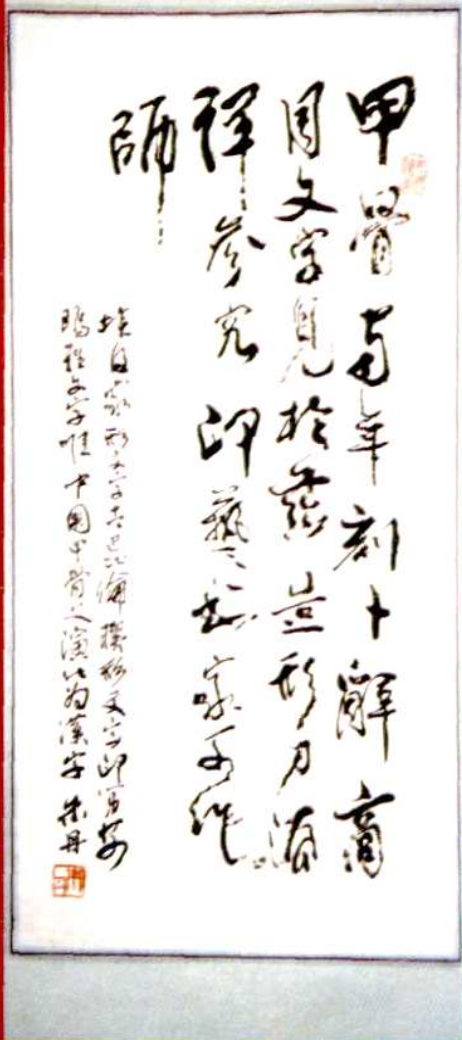 甲骨当年刻卜辞商
周文字见于兹岂形刀法
详参究印艺书家可作
师
埃及象形文字古巴比伦楔形文字印第安
玛雅文字唯中国甲骨文演化为汉字 朱丹